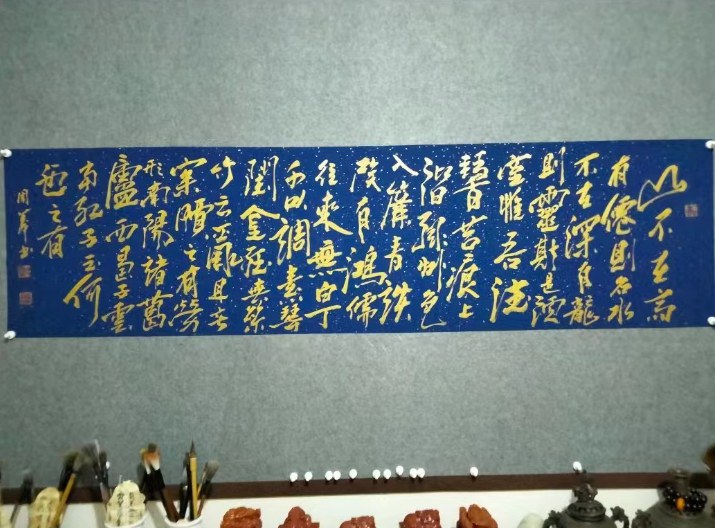 山不在高
有僊則名水
不在深有龍
則靈斯是陋
室惟吾德
馨苔痕上
階綠草色
入簾青談
笑有鴻儒
往來無白丁
可以調素琴
閱金經無絲
竹之亂耳無
案牘之有勞
形南陽諸葛
廬西蜀子雲
亭孔子云何
陋之有